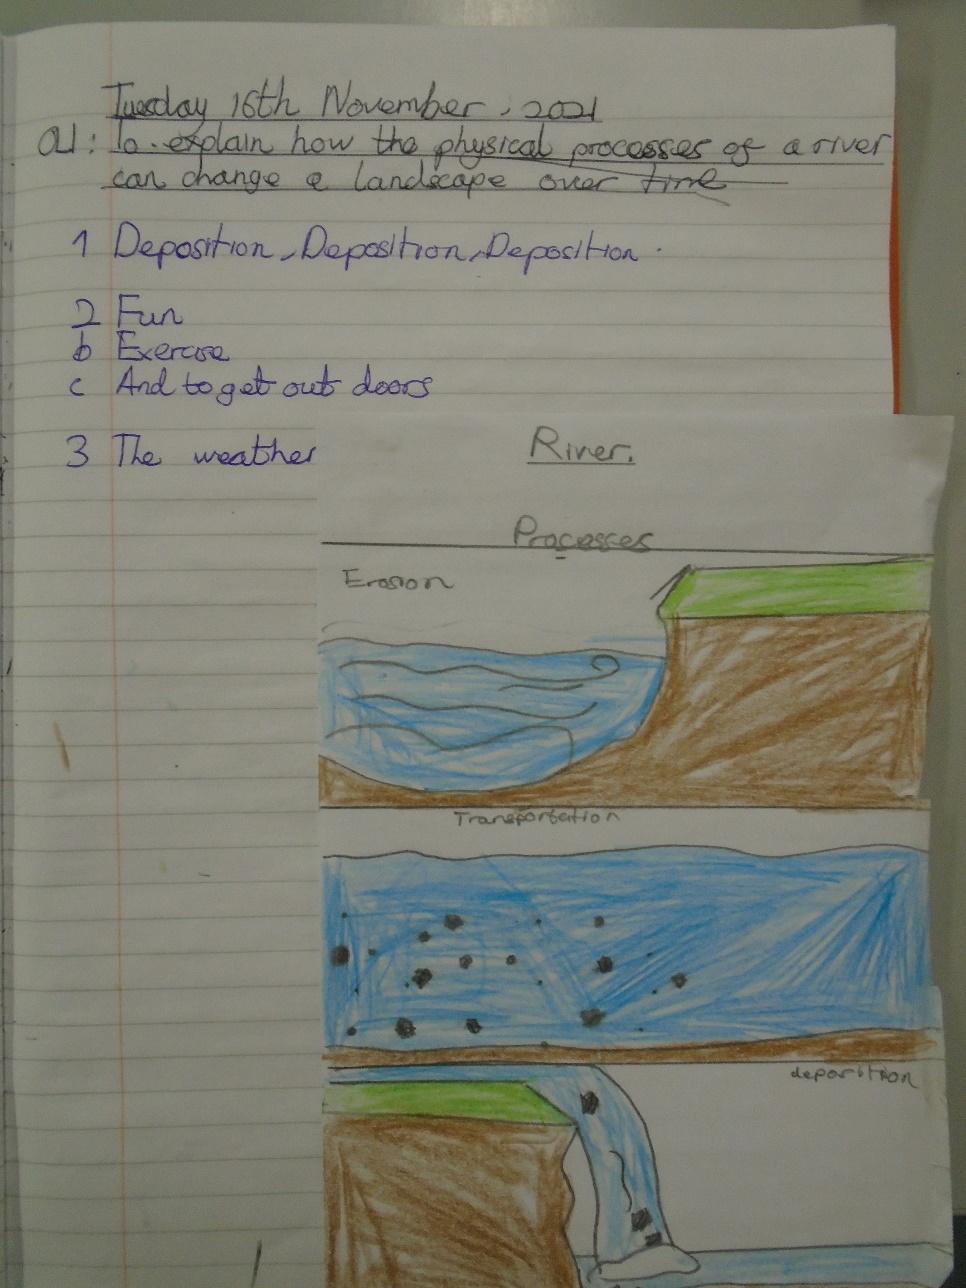 Tuesday 16th November, 2021
OU: To explain how the physical processes of a river
can change a landscape over time
1 Deposition, Deposition, Deposition.
2 Fun
b Exercise
c And to get out doors
3 The weather
River.
Processes
Erosion
Transportation
deposition